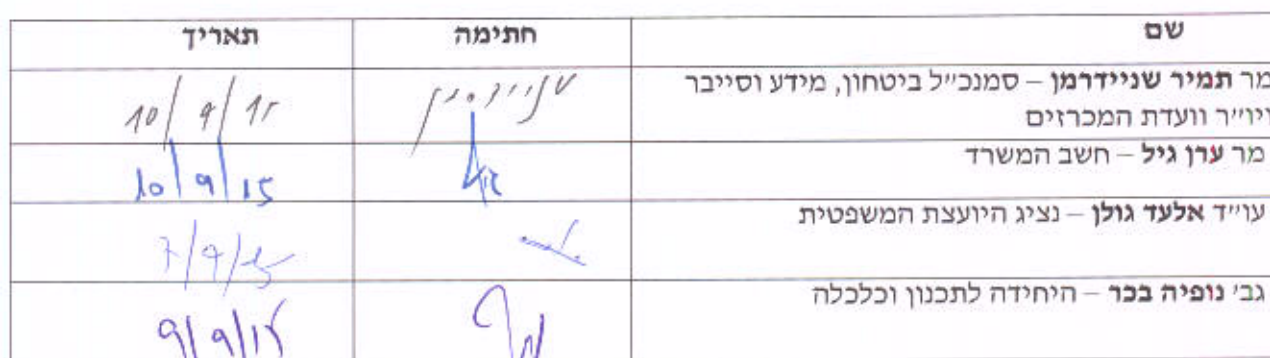 שם חתימה תאריך
מר תמיר שניידרמן – סמנכ״ל ביטחון, מידע וסייבר
ויו״ר וועדת המכרזים
שניידרמן 10/9/15
מר ערן גיל – חשב המשרד
10/9/15
עו״ד אלעד גולן – נציג היועצת המשפטית
7/9/15
גב׳ נופיה בכר – היחידה לתכנון וכלכלה
9/9/15